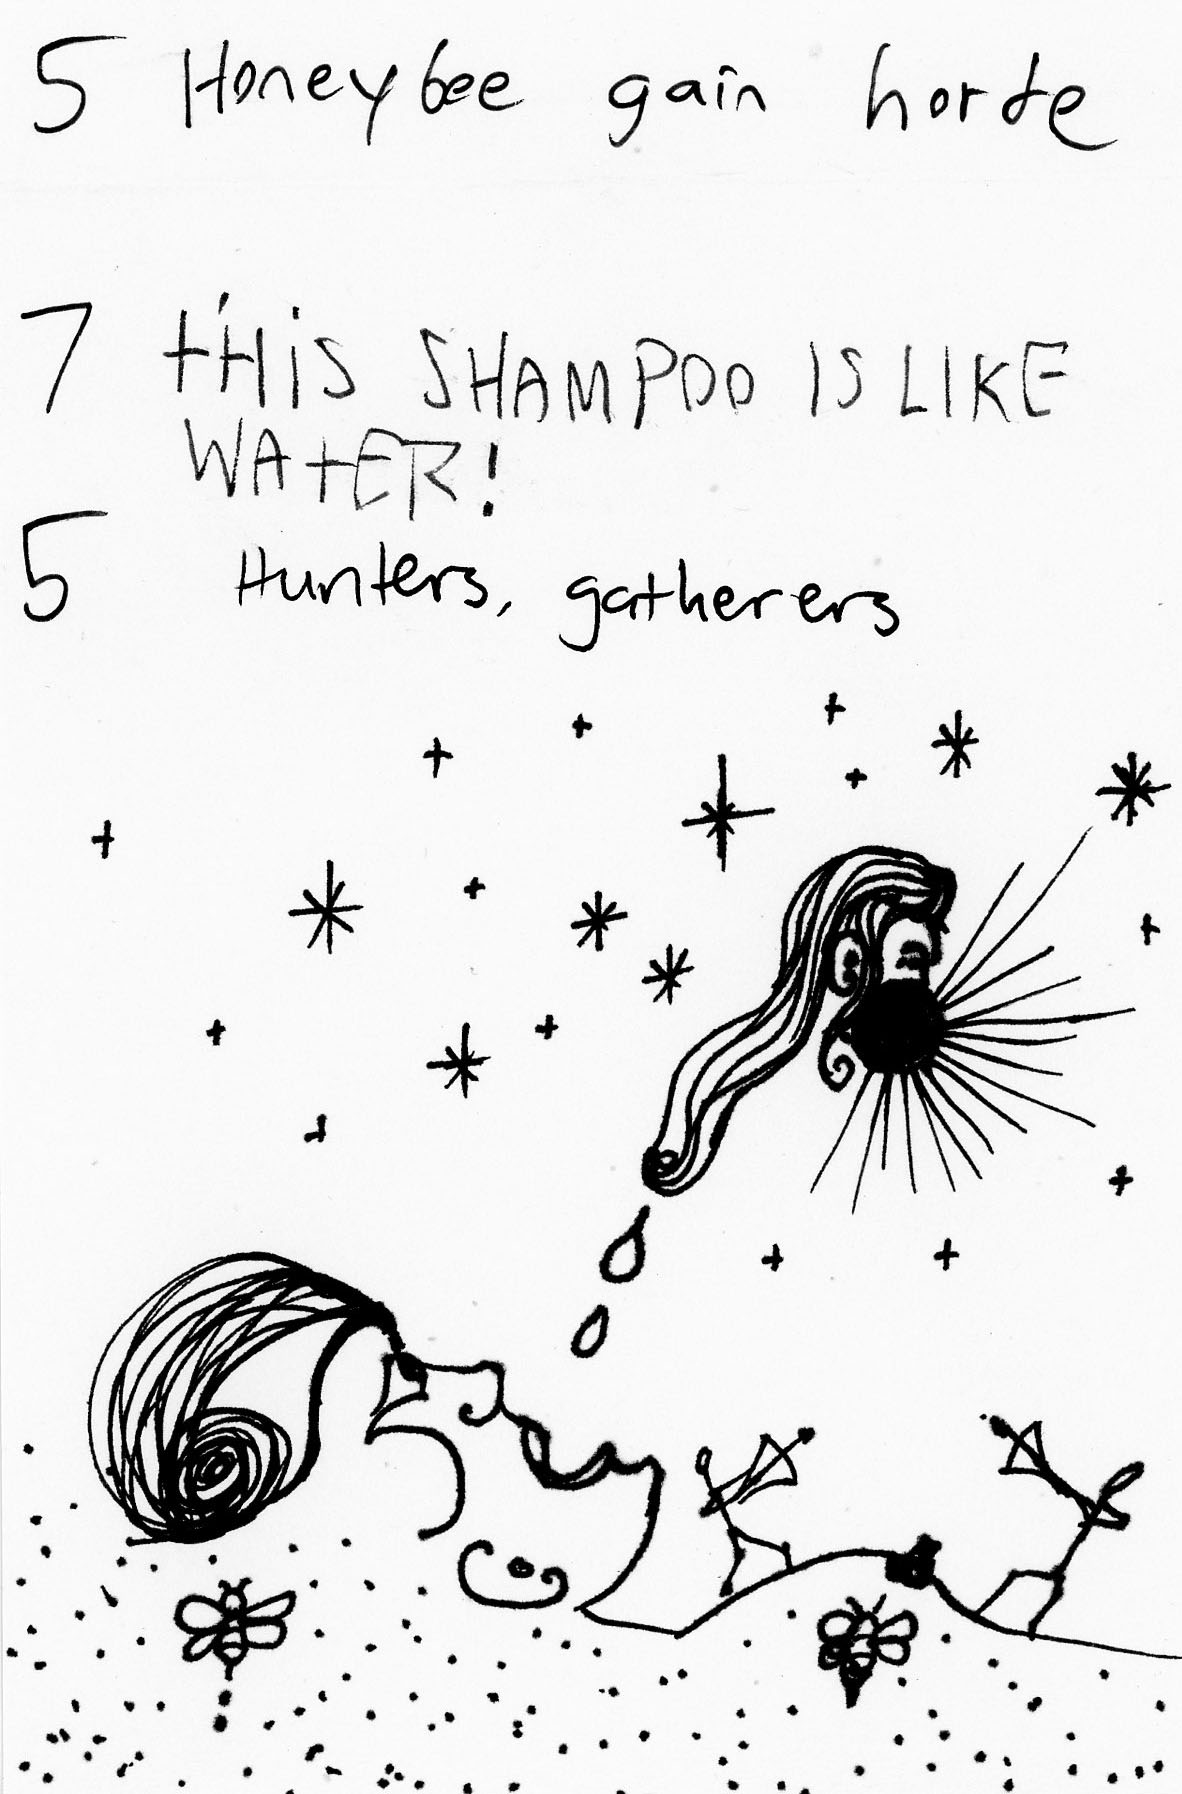 5 Honeybee gain horde
7 tHiS SHAMPOO IS LIKE
WAtER!
5 Hunters, gatherers